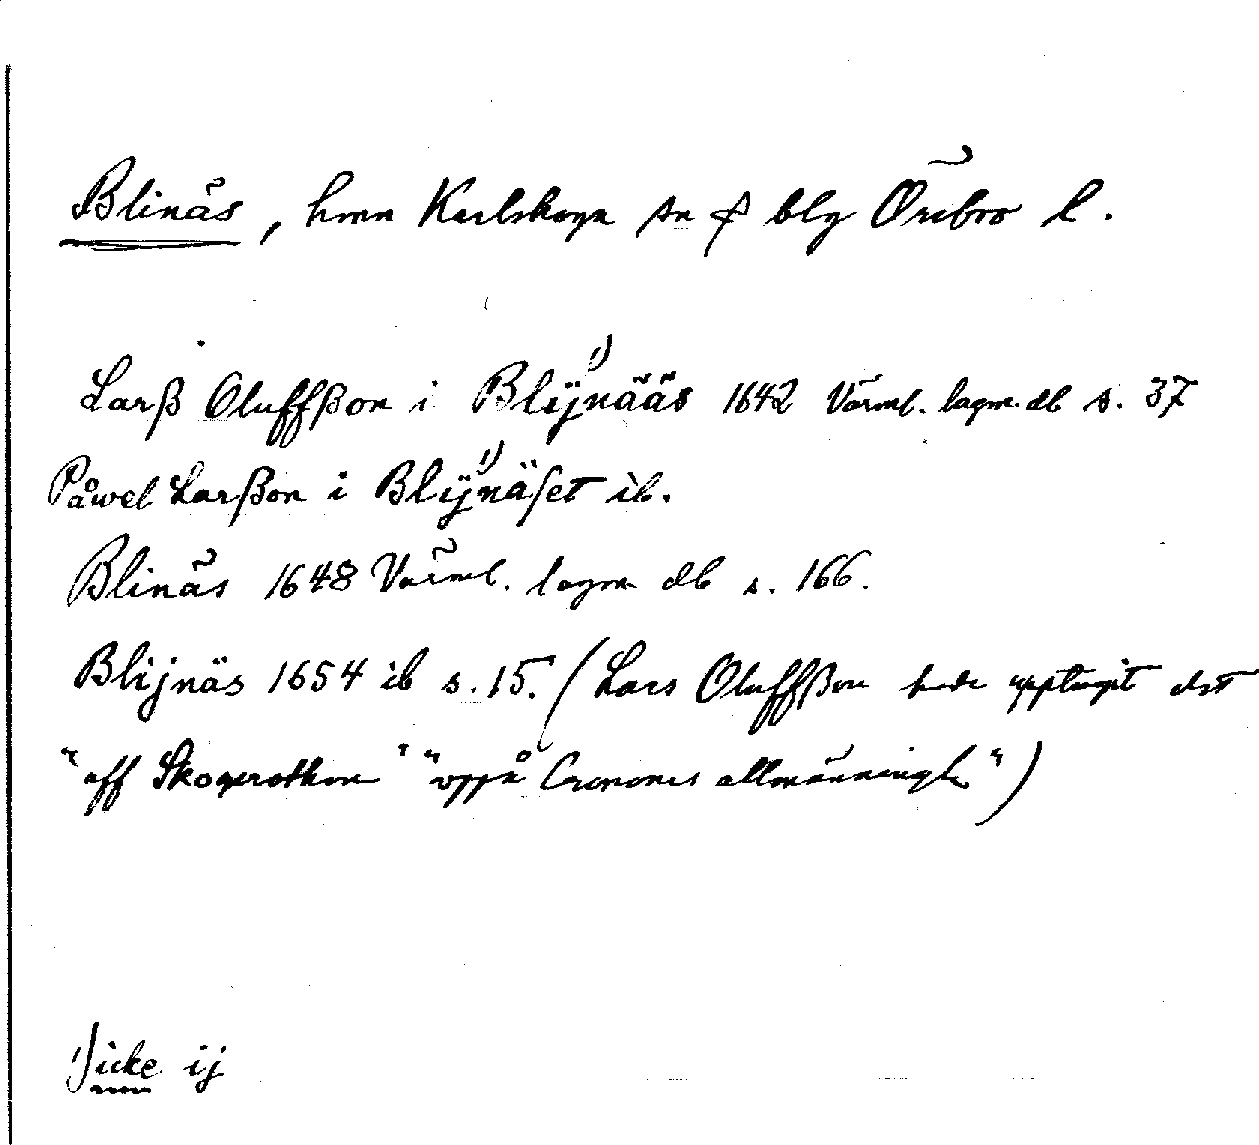 Blinäs, hmn Karlskoga sn f blg Örebro l.
Larß Oluffßon i Blÿnääs 1) 1642 Värml. lagm. db s. 37
Påwel Larßon i Blÿnäset 1) ib.
Blinäs 1648 Värml. lagm db s. 166.
Blijnäs 1654 ib s. 15. (Lars Oluffßon hade upptagit det
"aff Skogzrothen" "vppå Cronones allmänningh")
1) icke ij